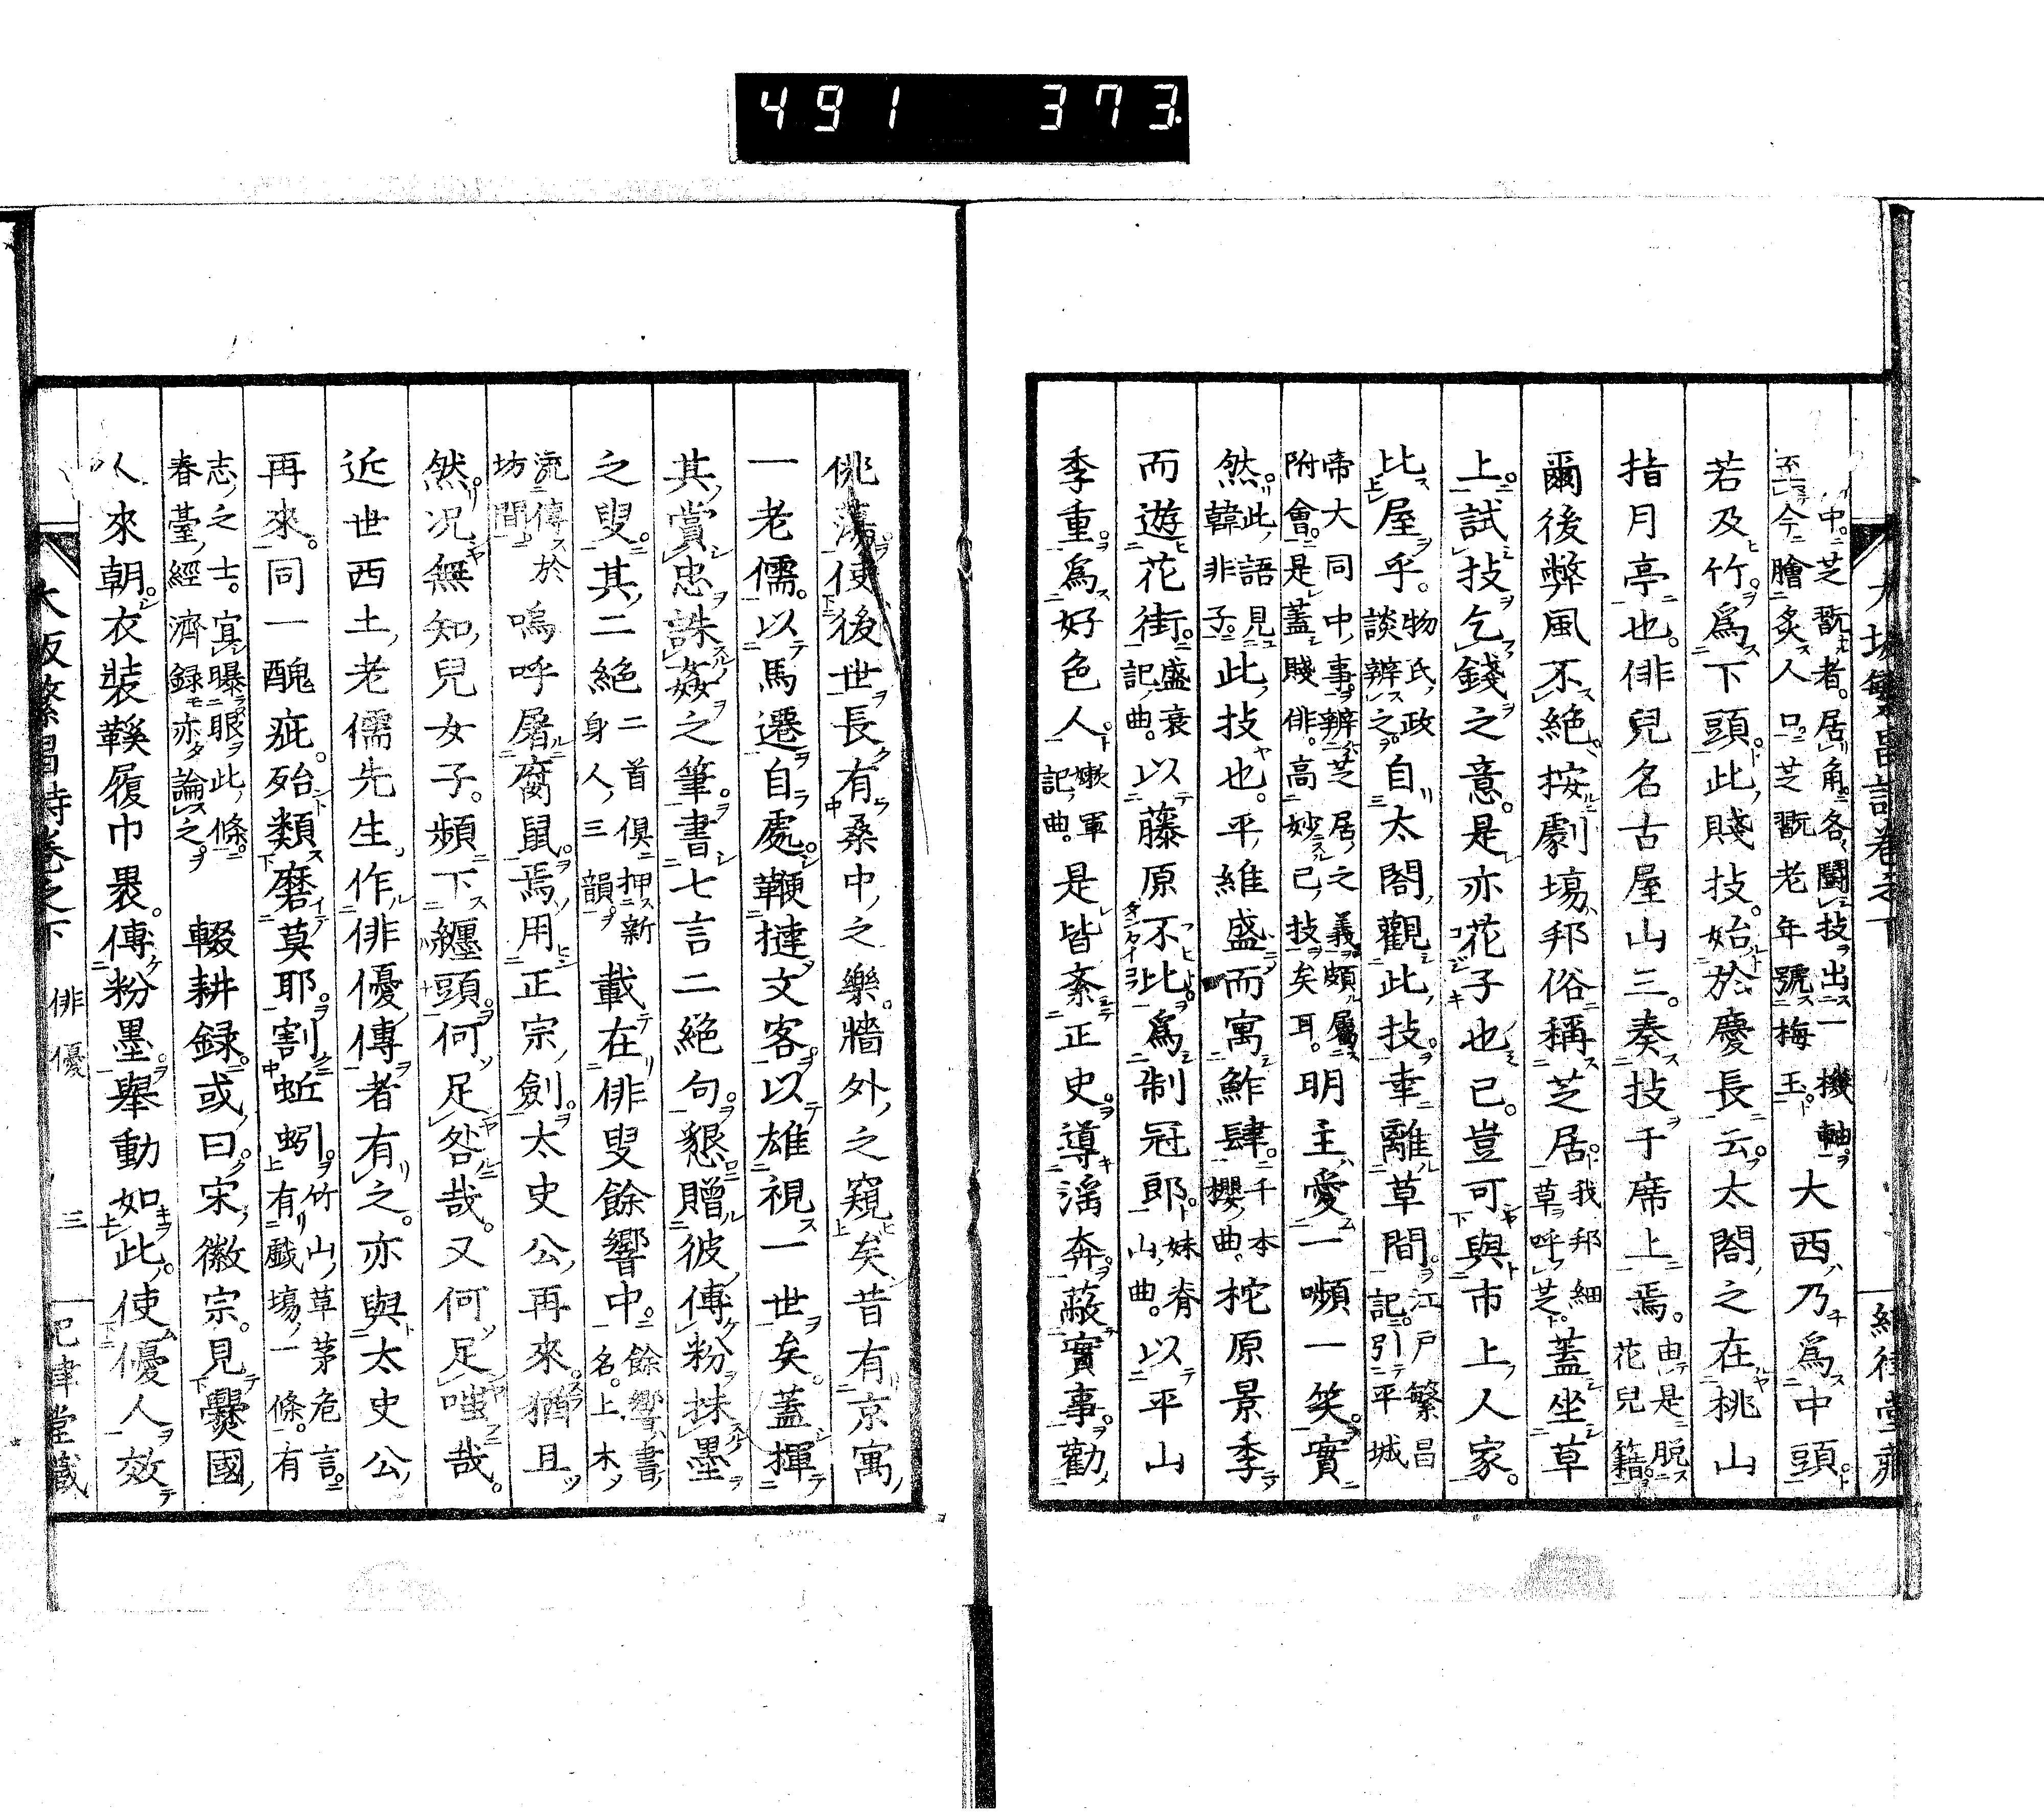 491 373
中。芝翫者。居角。各鬪技。出一機軸
不今膾炙人口。芝翫老年號梅玉。大西乃爲中頭。
若及竹爲下頭。此賤技。始於慶長云。太閤之在桃山
指月亭也。俳兒名古屋山三。奏技于席上焉。由是脱花兒籍。
爾後弊風不絶。按劇場邦俗稱芝居。我邦細草呼芝。蓋坐草
上。試技乞錢之意。是亦花子也已。豈可與市上人家。
比屋乎。物氏政談辨之。自太閤觀此技。事離草間。江戸繁昌記引平城
帝大同中事。辨芝居之義。頗屬附會。是蓋賤俳。高妙己技矣耳。明主愛一嚬一笑。實
然。此語見韓非子。此技也。平維盛而寓鮓肆。千本櫻曲。梶原景季
而遊花街。盛衰記曲。以藤原不比爲制冠郎。妹脊山曲。以平山
季重爲好色人。嫩軍記曲。是皆紊正史。導滛奔。蔽實事。勸
大坂繁昌詩卷之下
佻蕩。使後世長有桑中之樂。牆外之窺矣。昔有京寓
一老儒。以馬遷自處。鞭撻文客。以雄視一世矣。蓋揮
其賞忠誅姦之筆。書七言二絶句。懇贈彼傅粉抹墨
之叟。其二絶二首俱押新身人三韻。載在俳叟餘響中。餘響書名。上木
流傳於坊間。嗚呼屠腐鼠焉。用正宗劍。太史公再來。猶且
然。况無知兒女子。頻下纏頭。何足咎哉。又何足嗤哉。
近世西土老儒先生。作俳優傳者有之。亦與太史公
再來。同一醜疵。殆類磨莫耶。割蚯蚓。竹山草茅危言。有戲場一條。有
志之士。宜曝眼此條。春臺經濟録亦論之。輟耕録。或曰。宋徽宗。見爨國
人來朝。衣裝鞵履巾裹。傅粉墨。舉動如此。使優人效
大坂繁昌詩卷之下 俳優 三